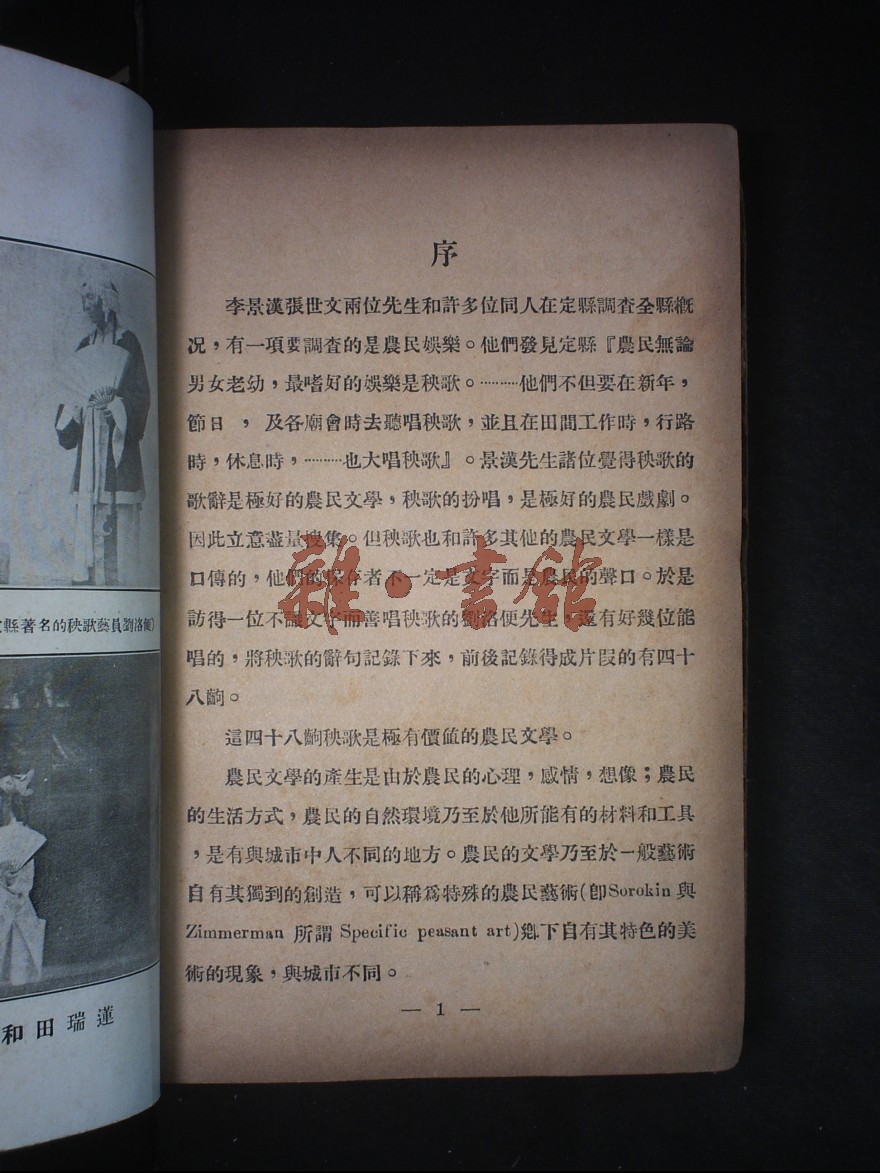 序
李景漢張世文兩位先生和許多位同人在定縣調查全縣概
况，有一項要調查的是農民娛樂。他們發見定縣『農民無論
男女老幼，最嗜好的娛樂是秧歌。………他們不但要在新年，
節日，及各廟會時去聽唱秧歌，並且在田間工作時，行路
時，休息時，………也大唱秧歌』。景漢先生諸位覺得秧歌的
歌辭是極好的農民文學，秧歌的扮唱，是極好的農民戲劇。
因此立意盡量搜集。但秧歌也和許多其他的農民文學一樣是
口傳的，他們的保存者不一定是文字而是農民的聲口。於是
訪得一位不識文字而善唱秧歌的劉洛便先生，還有好幾位能
唱的，將秧歌的辭句記錄下來，前後記錄得成片段的有四十
八齣。
這四十八齣秧歌是極有價值的農民文學。
農民文學的產生是由於農民的心理，感情，想像；農民
的生活方式，農民的自然環境乃至於他所能有的材料和工具
，是有與城市中人不同的地方。農民的文學乃至於一般藝術
自有其獨到的創造，可以稱爲特殊的農民藝術(卽Sorokin與
Zimmerman 所謂 Specific peasant art)鄉下自有其特色的美
術的現象，與城市不同。
— 1 —
縣著名的秧歌藝員劉洛便)
和田瑞蓮
雜·書館